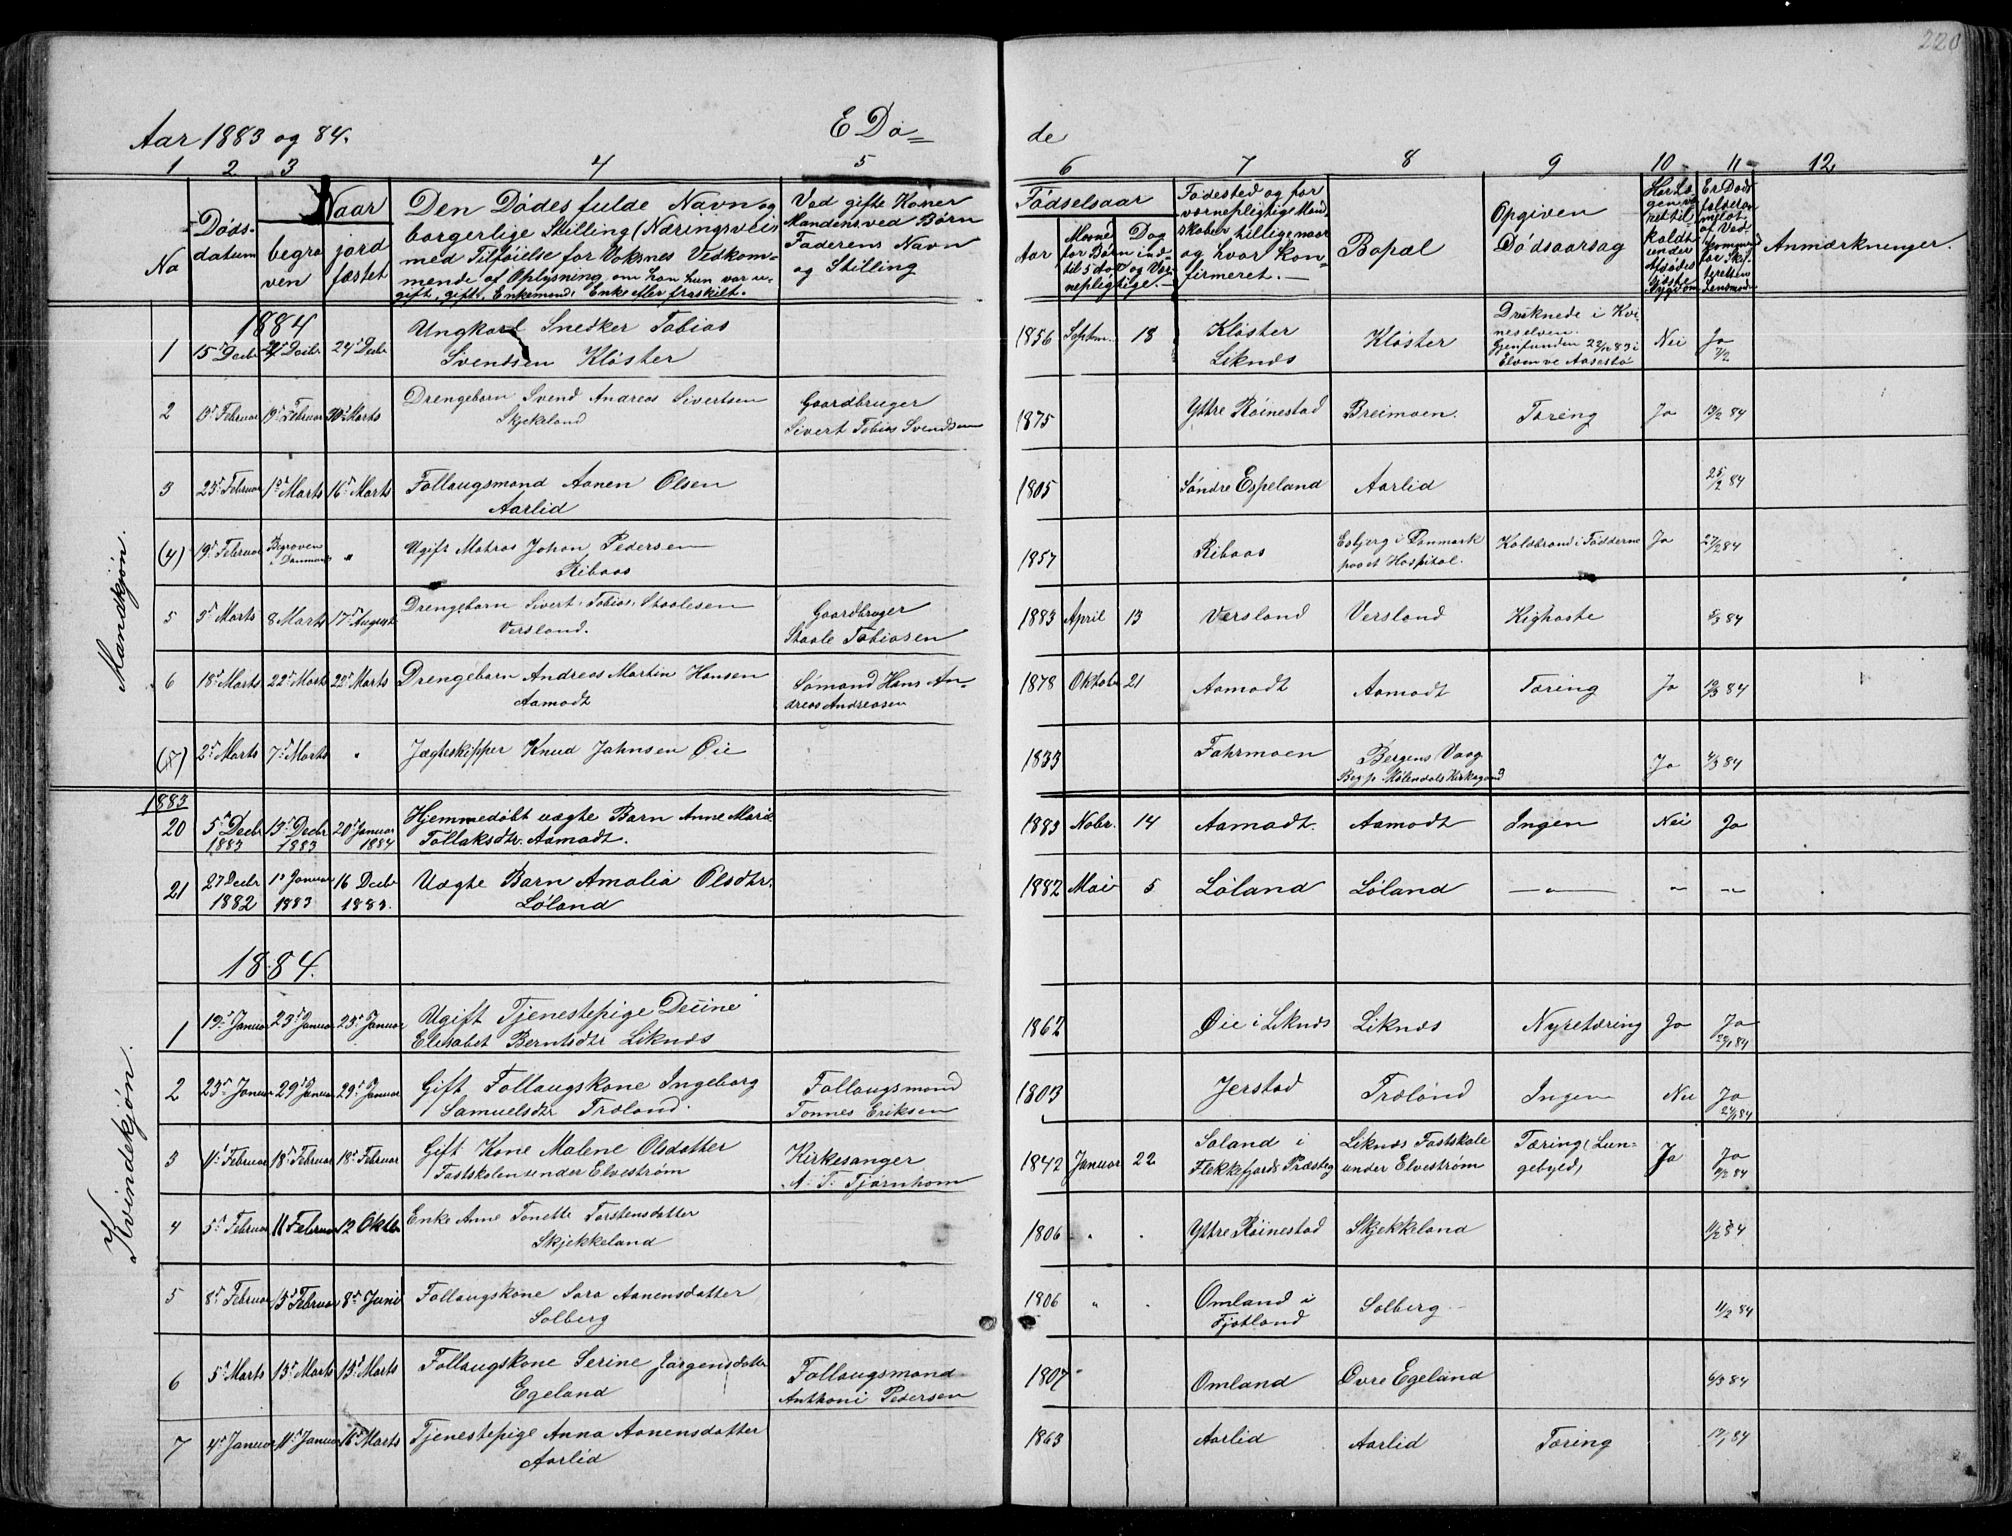 220
Aar 1883 og 84.
E Dö=
de
1 2 3 4 5 6 7 8 9 10 11 12
No
Döds-
datum
Naar
begra
ven
jord
fæstet
Den Dödes fulde Navn og
borgerlige Stilling (Næringsvei)
med Tilföielse for Voksnes Vedkom-
mende af Oplysning, om han, hun var u-
gift, gift, Enkemand, Enke eller fraskilt.
Ved gifte Koner
Mandens, ved Börn
Faderens Navn
og Stilling
Födselsaar
Aar
Maaned
for Börn ind-
til 5 Aar
Dag
og Vær-
nepligtige.
Födested og for
værnepligtige Mand
skaber tillige naar
og hvor kon-
firmeret.
Bopæl
Opgiven
Dödsaarsag
Anmærkninger.
Mandkjön.
1884
1 15de Decbr 24 Decbr 24de Decbr Ungkarl Snedker Tobias
Svendsen Klöster
1856 Septbr. 18 Klöster
Liknæs Klöster Druknede i Kvi
neselven.
Gjenfunden 22/12 83 i
Elven ve Aasestö Nei Ja
2 13de Februar 19de Februar 30te Marts Drengebarn Svend Andreas Sivertsen
Skjekeland Gaardbruger
Sivert Tobias Svendsen
1875 Yttre Röinestad Breimoen. Tæring Ja 13/2 84
3 23de Februar 1ste Marts 16de Marts Follaugsmand Aanen Olsen
Aarlid
1805 Söndre Espeland Aarlid 25/2 84
(4) 19de Februar Begraven
i Danmark " Ugift Matros Johan Pedersen
Ribaas
1857 Ribaas Esbjerg i Danmark
paa et Hospital. Koldbrand i Födderne Ja 27/2 84
5 3de Marts 8 Marts 17de August Drengebarn Sivert Tobias Staalesen
Versland. Gaardbruger
Staale Tobiasen
1883 April 13 Versland Versland Kighoste 5/3 84
6 18de Marts 22de Marts 22de Marts Drengebarn Andreas Martin Hansen
Aamodt Sömand Hans An-
dreas Andreasen
1878 Oktober 21 Aamodt Aamodt Tæring Ja 19/3 84
(7) 2den Marts 7de Marts " Jægteskipper Knud Jahnsen Öie
1833 Fahrmoen Bergens Vaag
Beg. p. Mölendals Kirkegaard Ja 4/3 84
Kvindekjön.
1883
20 5te Decbr
1883 13de Decbr
1883 20de Januar
1884 Hjemmedöbt uægte Barn Anne Marie
Tollaksdtr. Aamodt.
1883 Nobr. 14 Aamodt. Aamodt Ingen Nei Ja
21 27 Decbr
1882 1ste Januar
1883 16 Decbr
1883. Uægte Barn Amalia Olsdtr.
Löland
1882 Mai 5 Löland Löland — " — " — " —
1884.
1 19de Januar 23de Januar 23de Januar Ugift Tjenestepige Deiine
Elisabet Berntsdtr Liknæs
1862 Öie i Liknæs Liknæs Nyretæring Ja Ja
20/1 84
2 23de Januar 29de Januar 29de Januar Gift Follaugskone Ingeborg
Samuelsdtr Træland. Follaugsmand
Tönnes Eriksen
1803 Jerstad Træland Ingen Nei Ja
24/1 84
3 11te Februar 18de Februar 18de Februar Gift Kone Malene Olsdatter
Fastskolen under Elveström Kirkesanger
N. T. Tjörnhom
1842 Januar 22 Saland i
Flekkefjords Præsteg. Liknæs Fastskole
under Elveström Tæring (Lun-
gebyld) Ja Ja
4 5te Februar 11 Februar 12 Oktbr Enke Anne Tonette Torstensdatter
Skjekkeland
1806 " " Yttre Röinestad Skjekkeland 11/2 84
5 8de Februar 15de Februar 8de Juni Follaugskone Sara Aanensdatter
Solberg
1806 " " Omland i
Fjotland Solberg 11/2 84
6 5te Marts 13de Marts 13de Marts Follaugskone Serine Jörgensdatter
Egeland Follaugsmand
Anthoni Pedersen
1807 " Omland Övre Egeland 6/3 84
7 4de Januar 11te Januar 16de Marts Tjenestepige Anna Aanensdatter
Aarlid
1863 Aarlid Aarlid Tæring